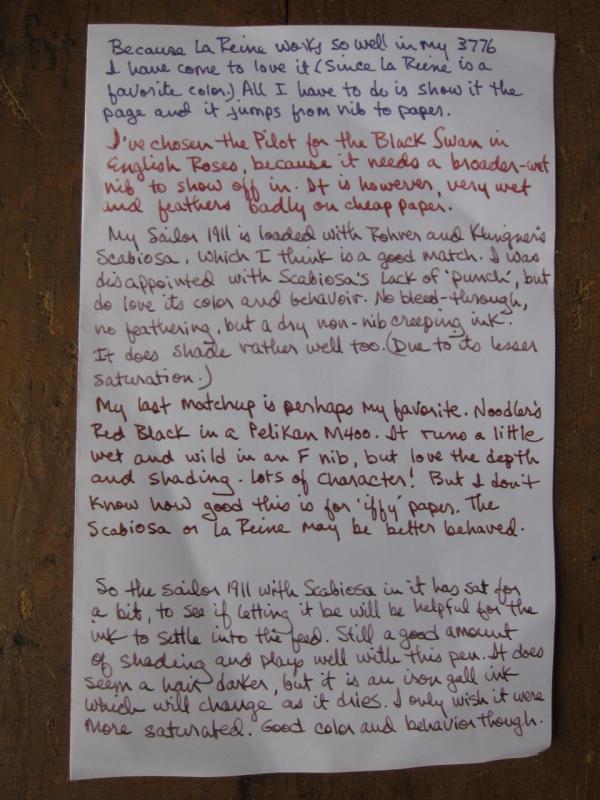 Because La Reine works so well in my 3776
I have come to love it (Since La Reine is a
favorite color.) All I have to do is show it the
page and it jumps from nib to paper.
I've chosen the Pilot for the Black Swan in
English Roses, because it needs a broader-wet
nib to show off in. It is however, very wet
and feathers badly on cheap paper.
My Sailor 1911 is loaded with Rohrer and Klingner's
Scabiosa, which I think is a good match. I was
disappointed with Scabiosa's lack of 'punch', but
do love its color and behavoir. No bleed-through,
no feathering, but a dry non-nib creeping ink.
It does shade rather well too. (Due to its lesser
saturation.)
My last matchup is perhaps my favorite. Noodler's
Red Black in a Pelikan M400. It runs a little
wet and wild in an F nib, but love the depth
and shading. Lots of character! But I don't
know how good this is for 'iffy' paper. The
Scabiosa or La Reine may be better behaved.
So the Sailor 1911 with Scabiosa in it has sat for
a bit, to see if letting it be will be helpful for the
ink to settle into the feed. Still a good amount
of shading and plays well with this pen. It does
seem a hair darker, but it is an iron gall ink
which will change as it dries. I only wish it were
more saturated. Good color and behavior though.